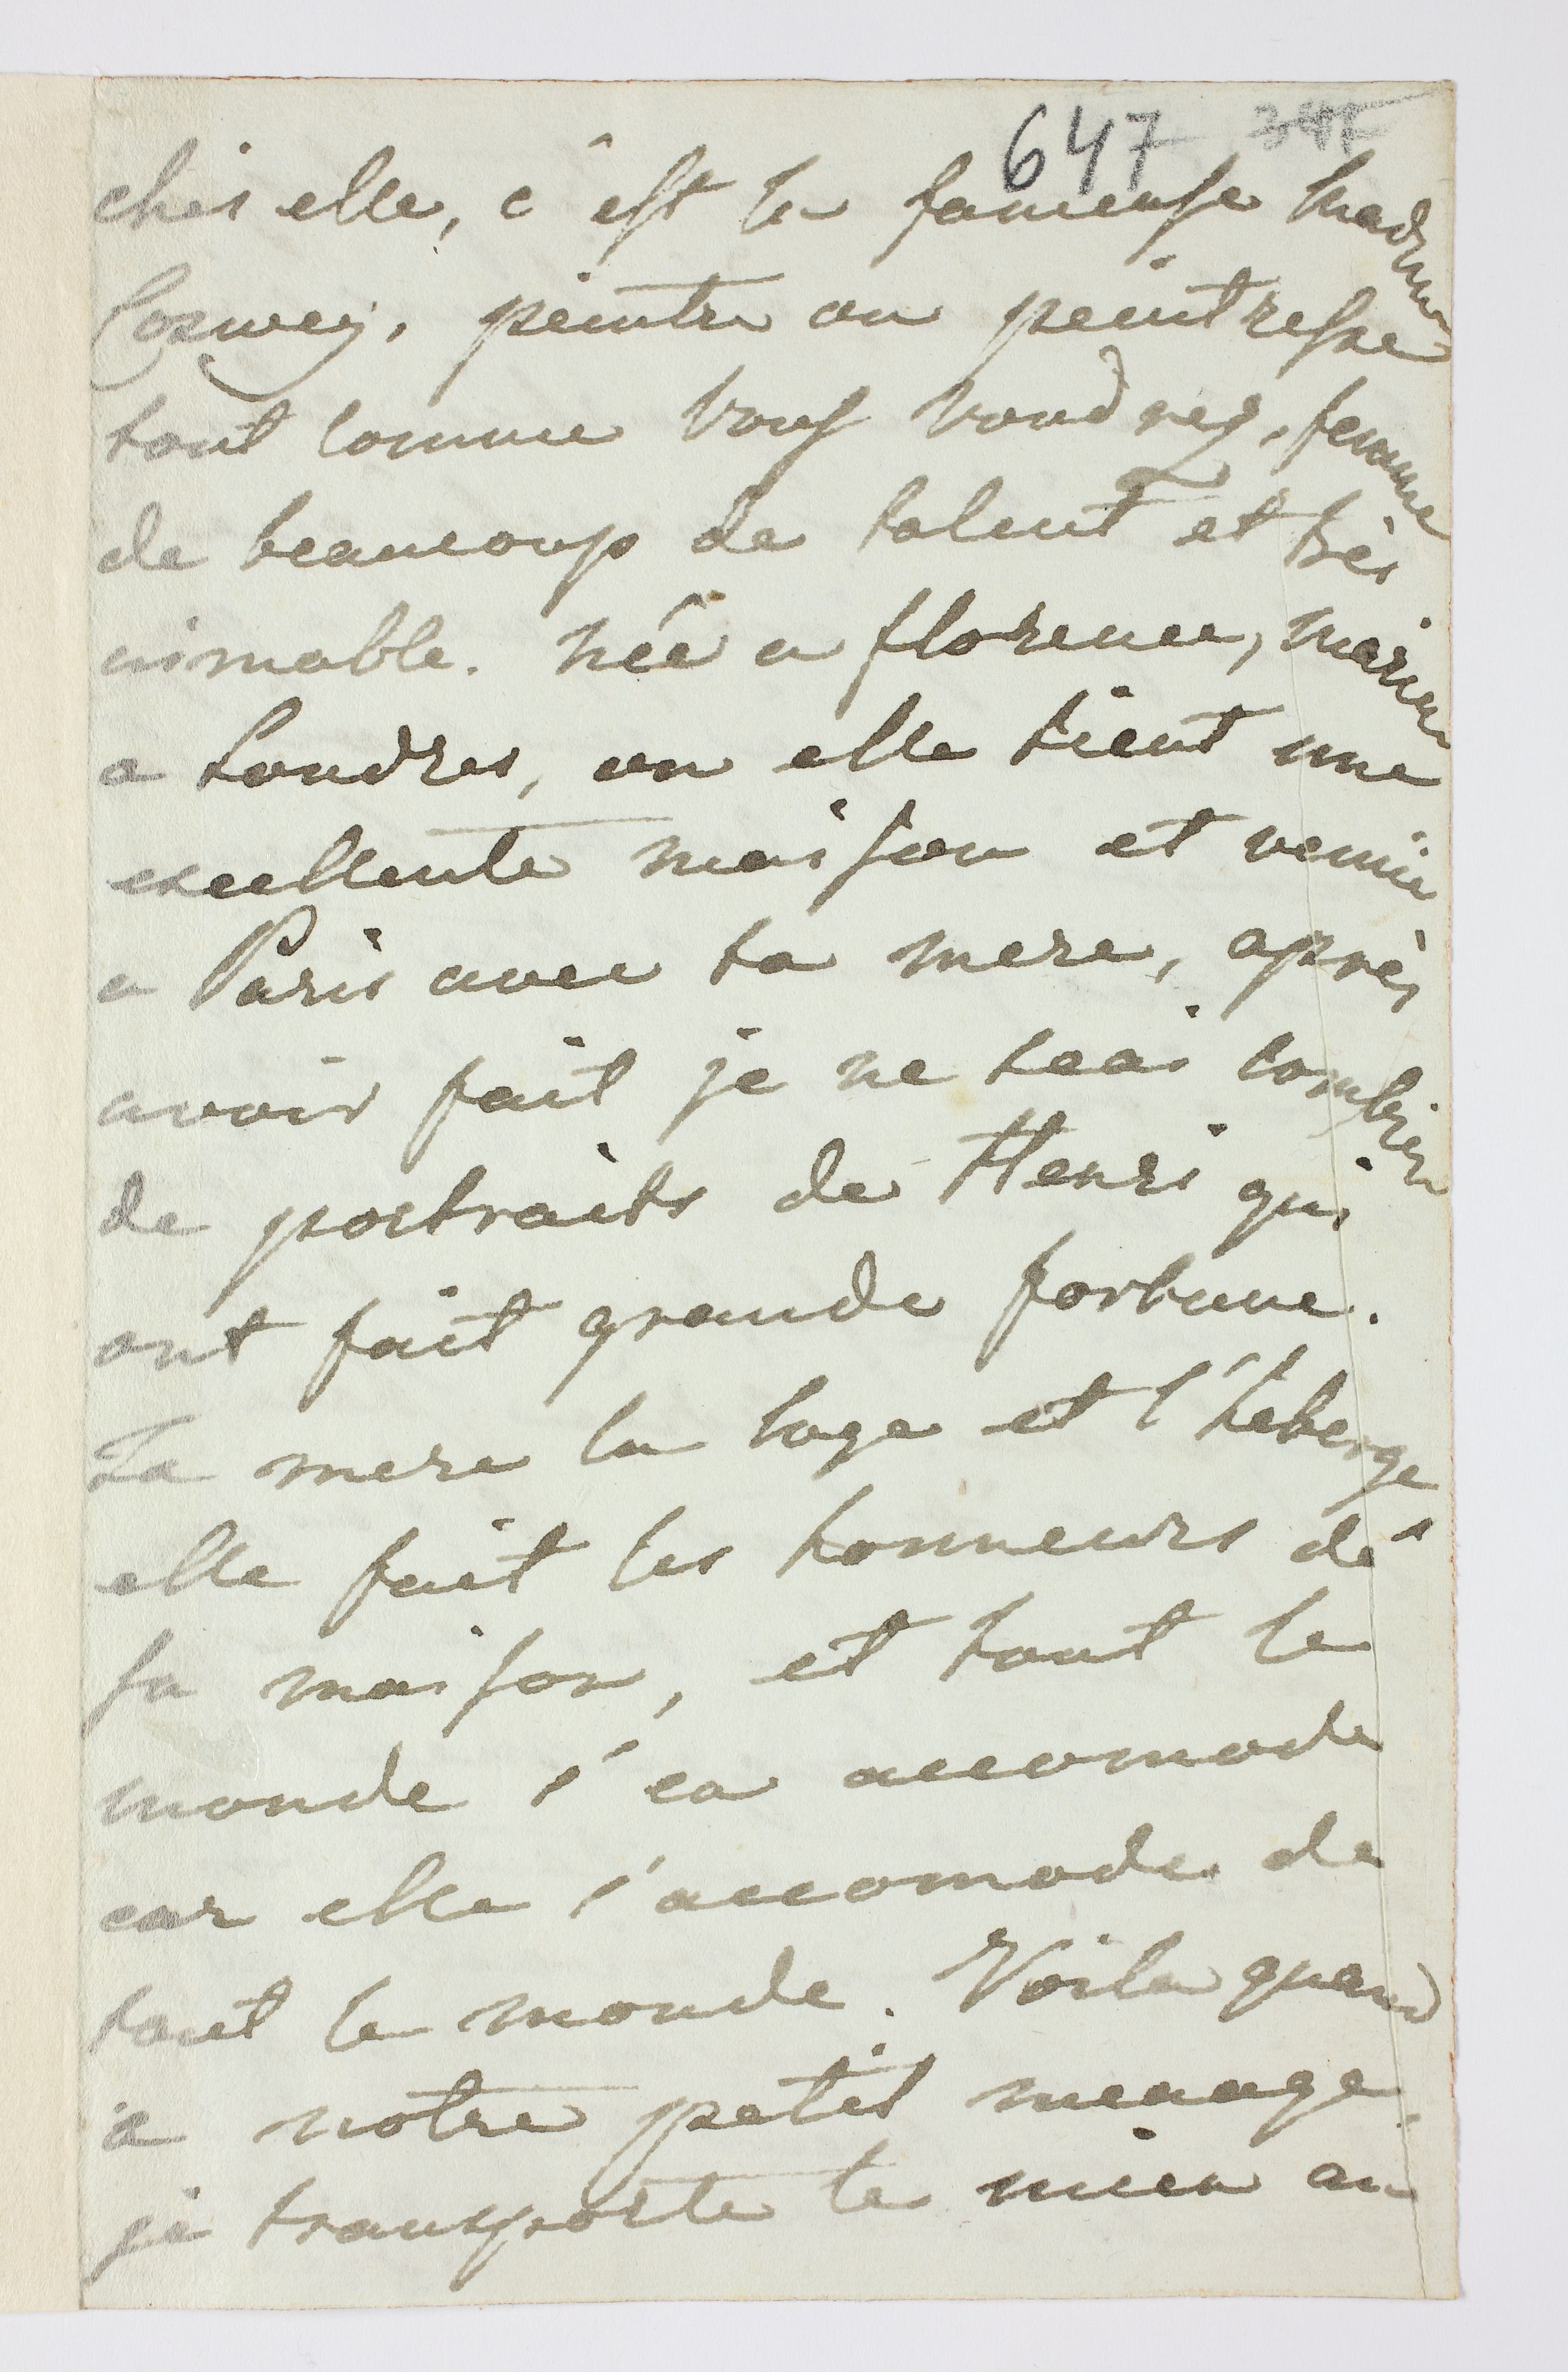 647 347
chés elle, c'est la fameuse Madame
Coswey, peintre ou peintresse
tout comme vous voudrez, femme
de beaucoup de talent et très
aimable. née a florence, mariée
a Londres, ou elle tient une
excellente maison et venue
a Paris avec ta mere, après
avoir fait je ne scai combien
de portraits de Henri qui
ont fait grande fortune.
Ta mere la loge et l'héberge
elle fait les honneurs de
sa maison, et tout le
monde s'en accomode
car elle s'accomode de
tout le monde. Voila quand
a notre petit menage,
je transporte le mien au